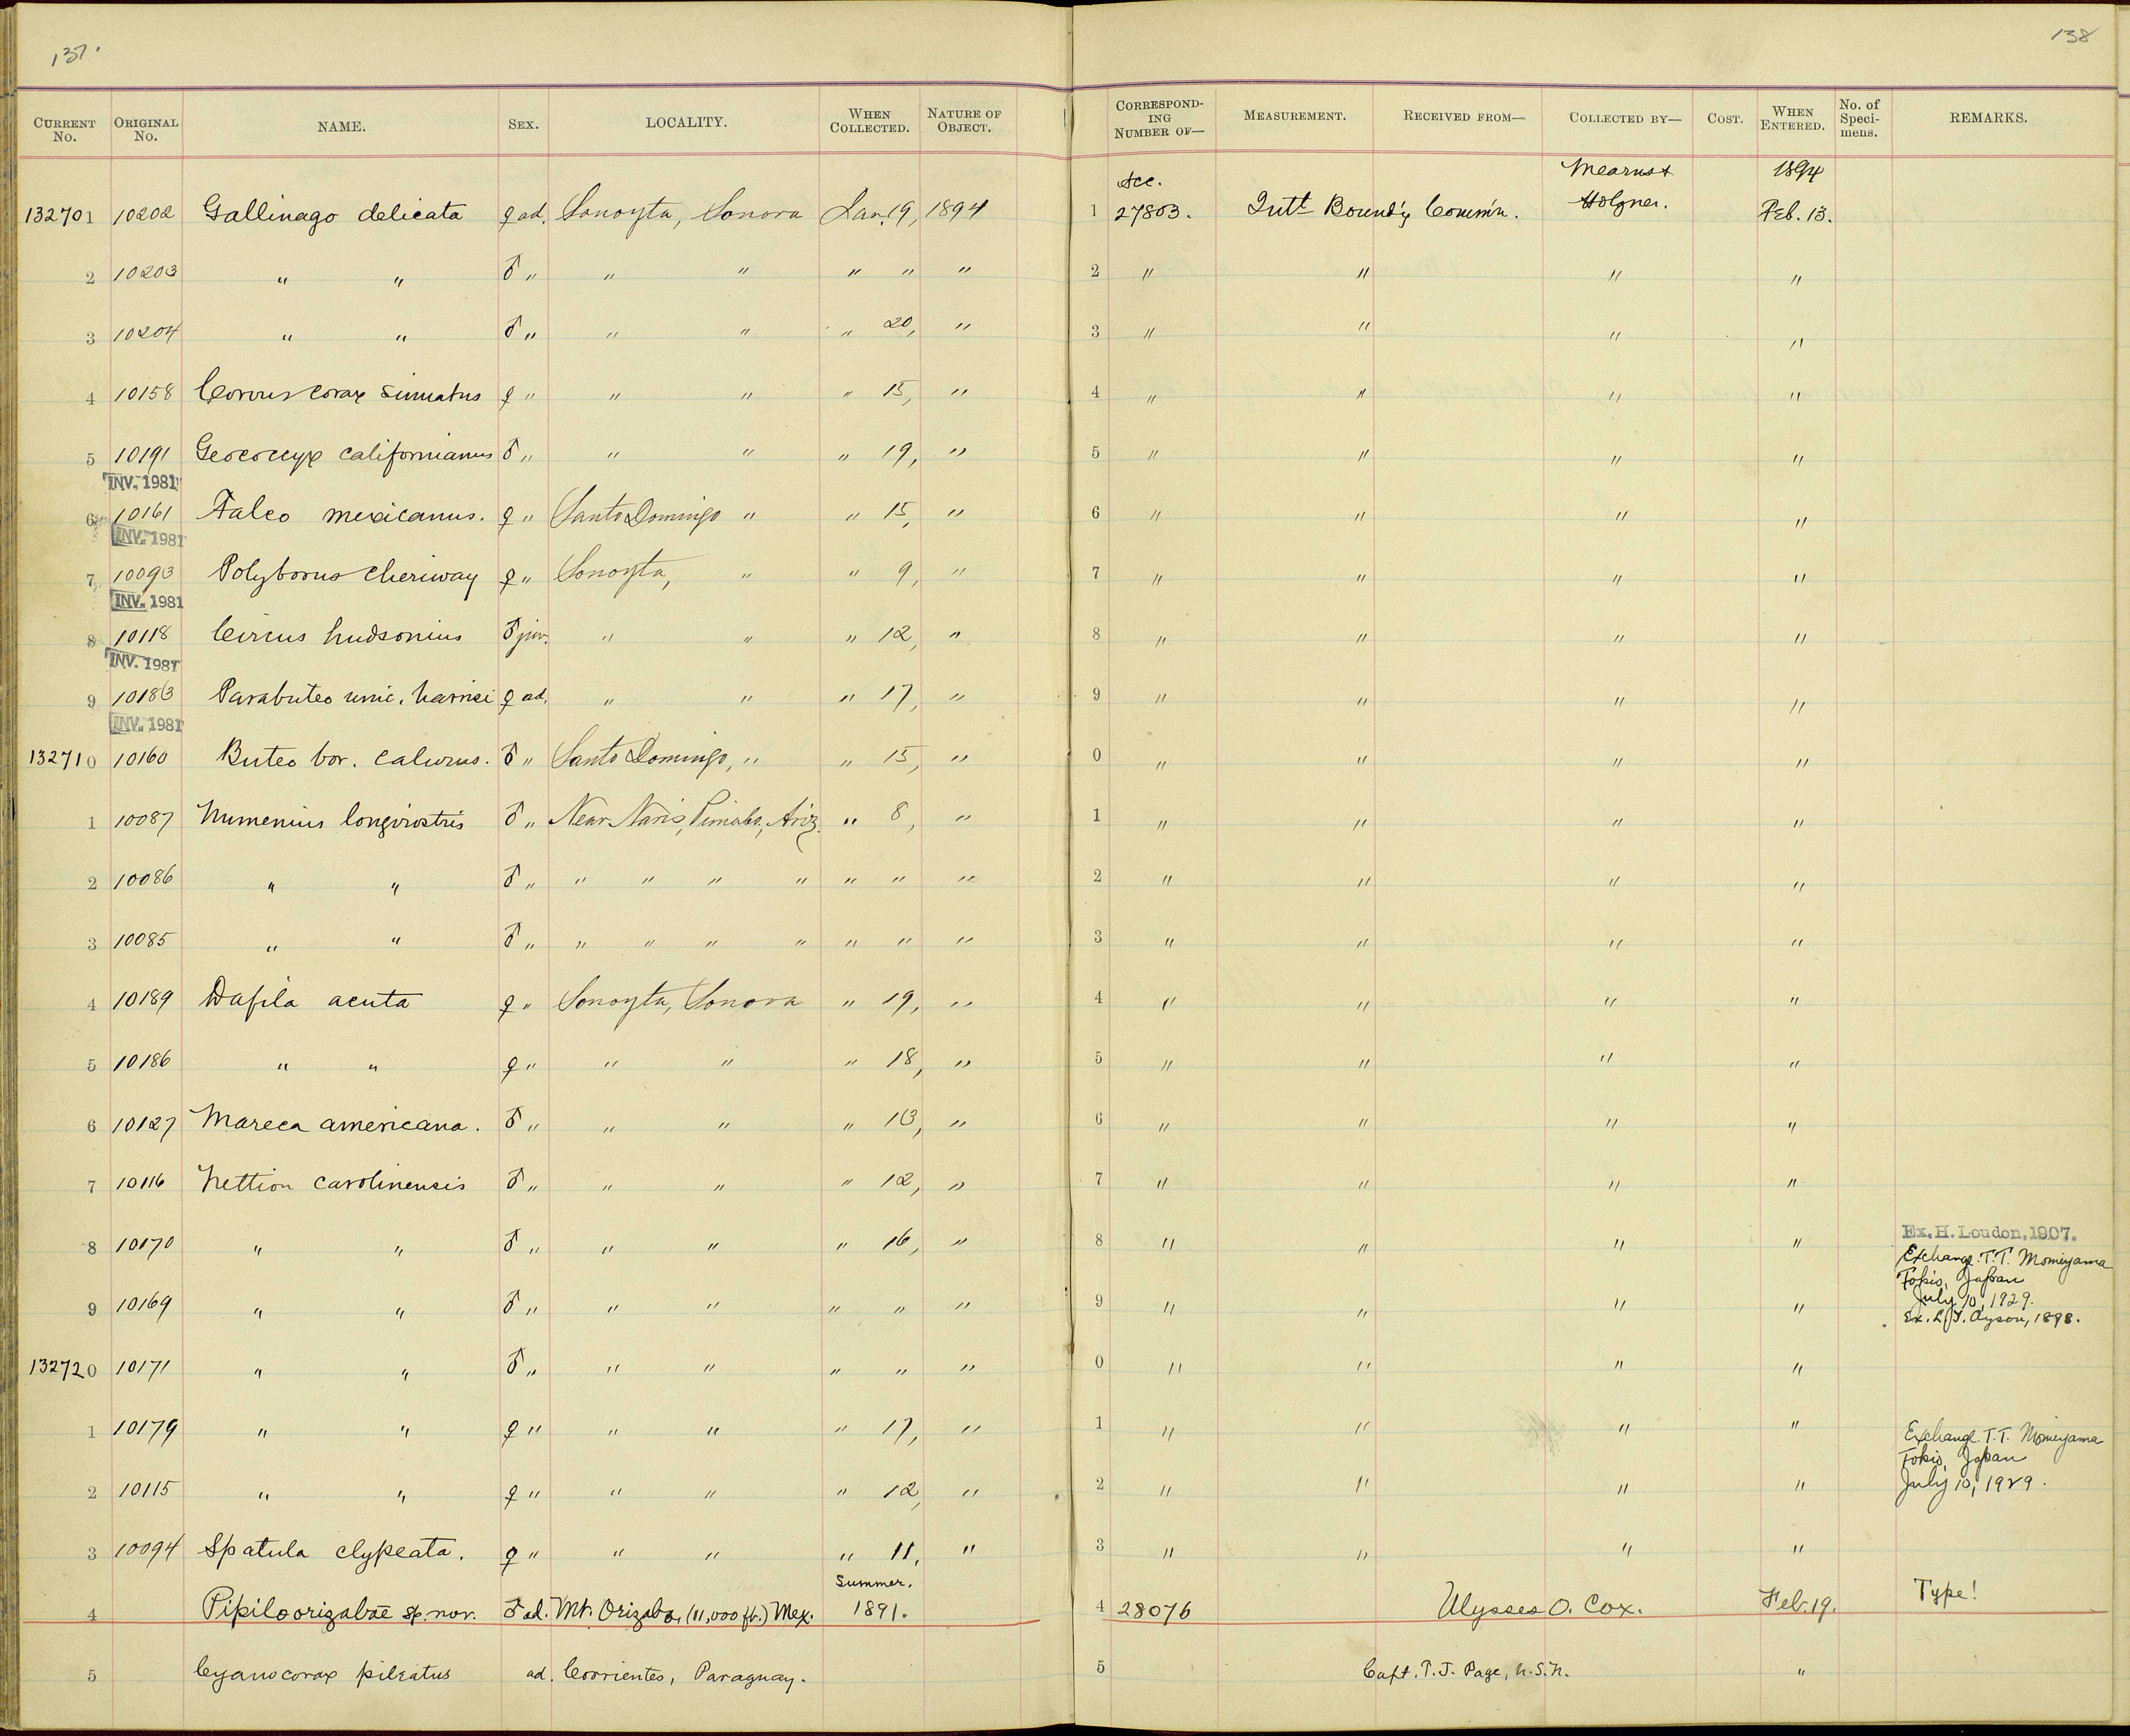 137.
CURRENT No. ORIGINAL No. NAME. SEX. LOCALITY. WHEN COLLECTED. NATURE OF OBJECT.
132701 10202 Gallinago delicata ♀ ad. Sonoyta, Sonora Jan. 19, 1894
2 10203 " " ♂ " " " " " "
3 10204 " " ♂ " " " " 20, "
4 10158 Corvus corax sinuatus ♀ " " " " 15, "
5 10191 Geococcyx californianus ♂ " " " " 19, "
INV. 1981
6 10161 Falco mexicanus. ♀ " Santo Domingo " " 15, "
INV. 1981
7 10093 Polyborus cheriway ♀ " Sonoyta, " " 9, "
INV. 1981
8 10118 Circus hudsonius ♂ juv. " " " 12, "
INV. 1981
9 10183 Parabuteo unic. harrisi ♀ ad. " " " 17, "
INV. 1981
132710 10160 Buteo bor. calurus. ♂ " Santo Domingo, " " 15, "
1 10087 Numenius longirostris ♂ " Near Naris, Pima Co., Ariz. " 8, "
2 10086 " " ♂ " " " " " " " "
3 10085 " " ♂ " " " " " " " "
4 10189 Dafila acuta ♀ " Sonoyta, Sonora " 19, "
5 10186 " " ♀ " " " " 18, "
6 10127 Mareca americana. ♂ " " " " 13, "
7 10116 Nettion carolinensis ♂ " " " " 12, "
8 10170 " " ♂ " " " " 16, "
9 10169 " " ♂ " " " " " "
132720 10171 " " ♂ " " " " " "
1 10179 " " ♀ " " " " 17, "
2 10115 " " ♀ " " " " 12, "
3 10094 Spatula clypeata. ♀ " " " " 11, "
Summer.
4 Pipilo orizabae sp. nov. ♂ ad. Mt. Orizaba, (11,000 ft.) Mex. 1891.
5 Cyanocorax pileatus ad. Corrientes, Paraguay.
138
CORRESPONDING NUMBER OF— MEASUREMENT. RECEIVED FROM— COLLECTED BY— COST. WHEN ENTERED. No. of Specimens. REMARKS.
Acc. Mearns & 1894
1 27803. Intl. Bound'y Comm'n. Holzner. Feb. 13.
2 " " " "
3 " " " "
4 " " " "
5 " " " "
6 " " " "
7 " " " "
8 " " " "
9 " " " "
0 " " " "
1 " " " "
2 " " " "
3 " " " "
4 " " " "
5 " " " "
6 " " " "
7 " " " "
8 " " " " Ex. H. Loudon, 1907.
Exchange. T.T. Momiyama
Tokio, Japan
9 " " " " July 10, 1929.
Ex. L.F. Ayson, 1898.
0 " " " "
1 " " " " Exchange. T.T. Momiyama
Tokio, Japan
2 " " " " July 10, 1929.
3 " " " "
4 28076 Ulysses O. Cox. Feb. 19. Type!
5 Capt. T. J. Page, U.S.N. "